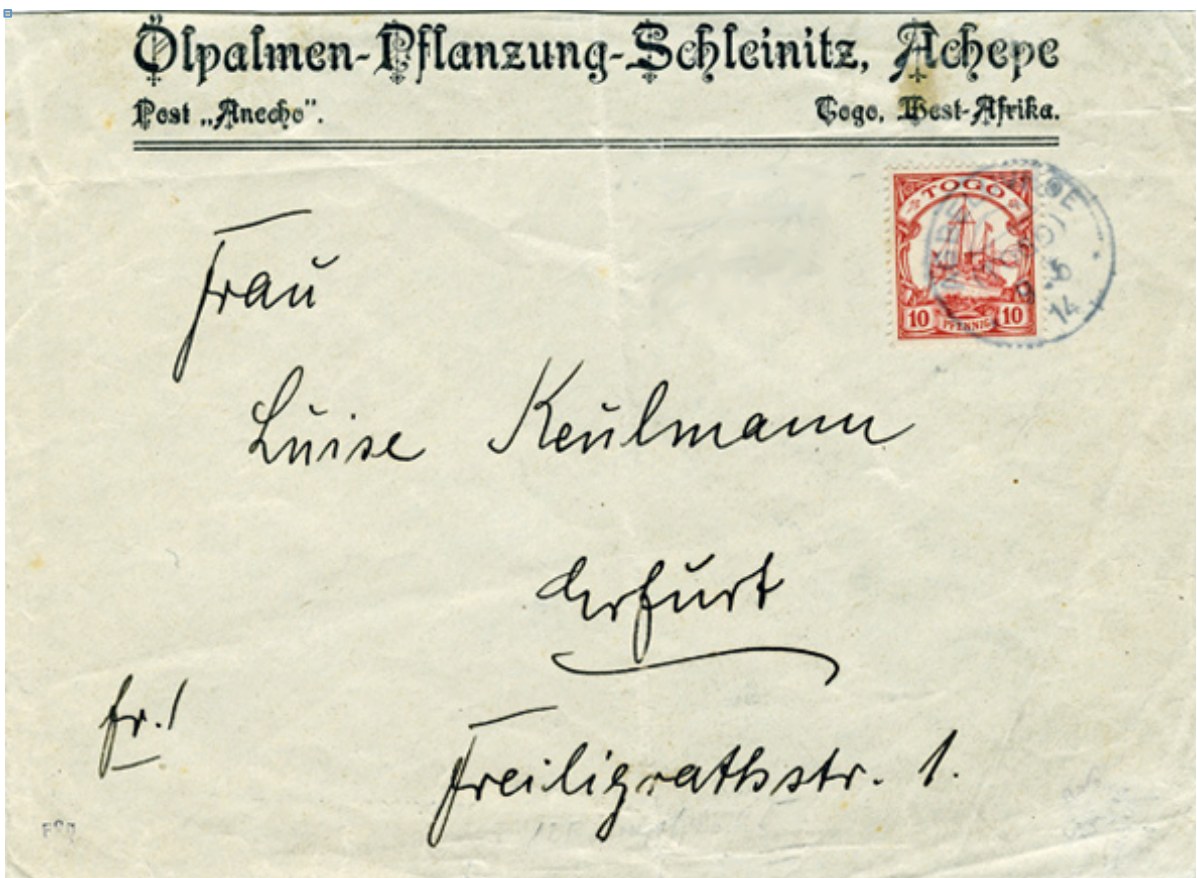 Ölpalmen-Pflanzung-Schleinitz, Achepe
Post „Anecho“. Togo, West-Afrika.
TOGO
10 PFENNIG 10
14
Frau
Luise Keulmann
Erfurt
fr.!
Freiligrathstr. 1.